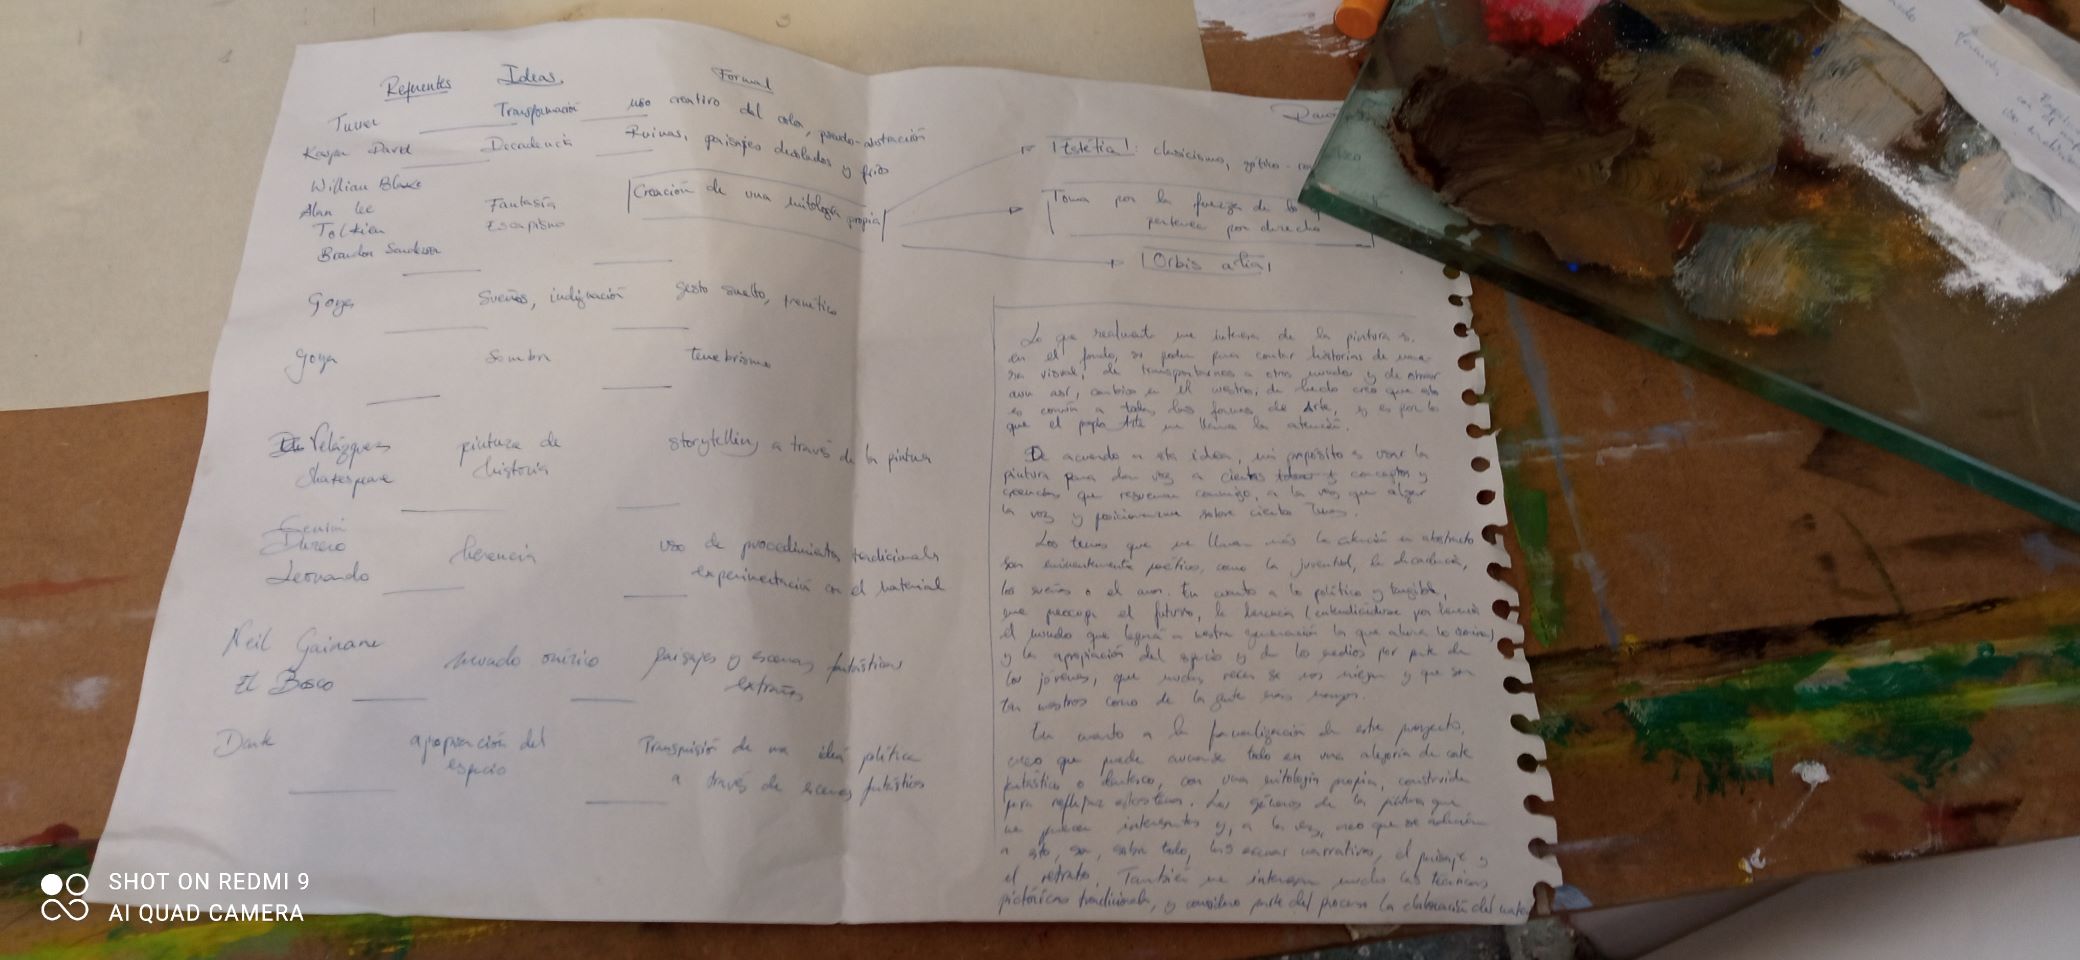 Referentes Ideas Formal
Turner Transformación uso creativo del color, pseudo-abstracción
Kaspar David Decadencia Ruinas, paisajes desolados y fríos
William Blake
Alan Lee Fantasía Creación de una mitología propia
Tolkien Escapismo
Brandon Sanderson
Goya Sueños, indignación gesto suelto, frenético
Goya Sombra tenebrismo
Velázquez pintura de storytelling a través de la pintura
Shakespeare historia
Durero herencia uso de procedimientos tradicionales
Leonardo experimentación con el material
Neil Gaimane mundo onírico Paisajes y escenas fantásticas
El Bosco extrañas
apropiación del Transmisión de una idea política
espacio a través de escenas fantásticas
Estética: clasicismo, gótico-
Toma por la fuerza de lo
pertenece por derecho
Orbis
Lo que realmente me interesa de la pintura es,
en el fondo, su poder para contar historias de mane-
ra visual, de transportarnos a otros mundos y de
aun así, cambios en el nuestro; de hecho creo que esto
es común a todas las formas de Arte, y es por lo
que el propio Arte me llama la atención.
De acuerdo a esta idea, mi propósito es usar la
pintura para dar voz a ciertos conceptos y
creencias que resuenan conmigo, a la vez que alzar
la voz y posicionarme sobre ciertos temas.
Los temas que me llaman más la atención en abstracto
son eminentemente poéticos, como la juventud, la decadencia,
los sueños o el amor. En cuanto a lo político y tangible,
me preocupa el futuro, la herencia (entendiéndose por herencia
el mundo que legará a nuestra generación la que ahora lo domina)
y la apropiación del espacio y de los medios por parte de
los jóvenes, que muchas veces se nos niegan y que son
tan nuestros como de la gente más mayor.
En cuanto a la formalización de este proyecto,
creo que puede aunarse todo en una alegoría de corte
fantástico o dantesco, con una mitología propia, construida
para reflejar estos temas. Los géneros de la pintura que
me parecen interesantes y, a la vez, creo que se
a esto, son, sobre todo, las escenas narrativas, el paisaje y
el retrato. También me interesan mucho las técnicas
pictóricas tradicionales, y considero parte del proceso la elaboración del
SHOT ON REDMI 9
AI QUAD CAMERA